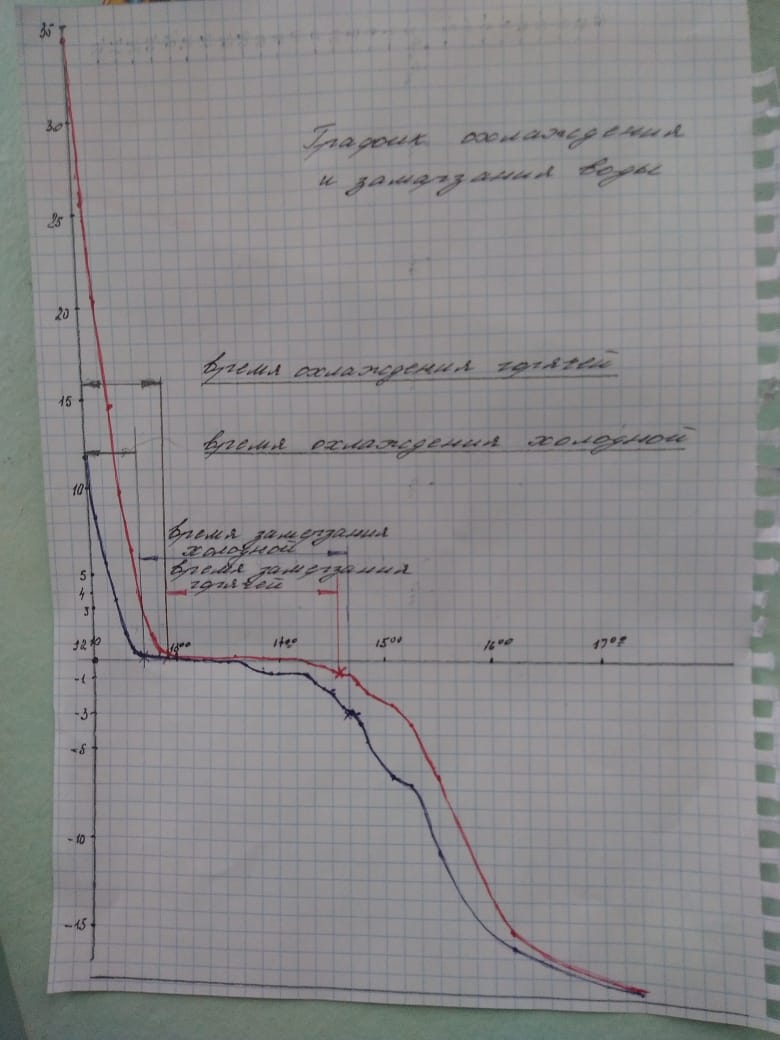 35
График охлаждения
30
и замерзания воды
25
20
время охлаждения горячей
15
время охлаждения холодной
10
время замерзания
холодной
время замерзания
горячей
5
4
3
12 10
13 00
14 00
15 00
16 00
17 00
-1
-3
-5
-10
-15